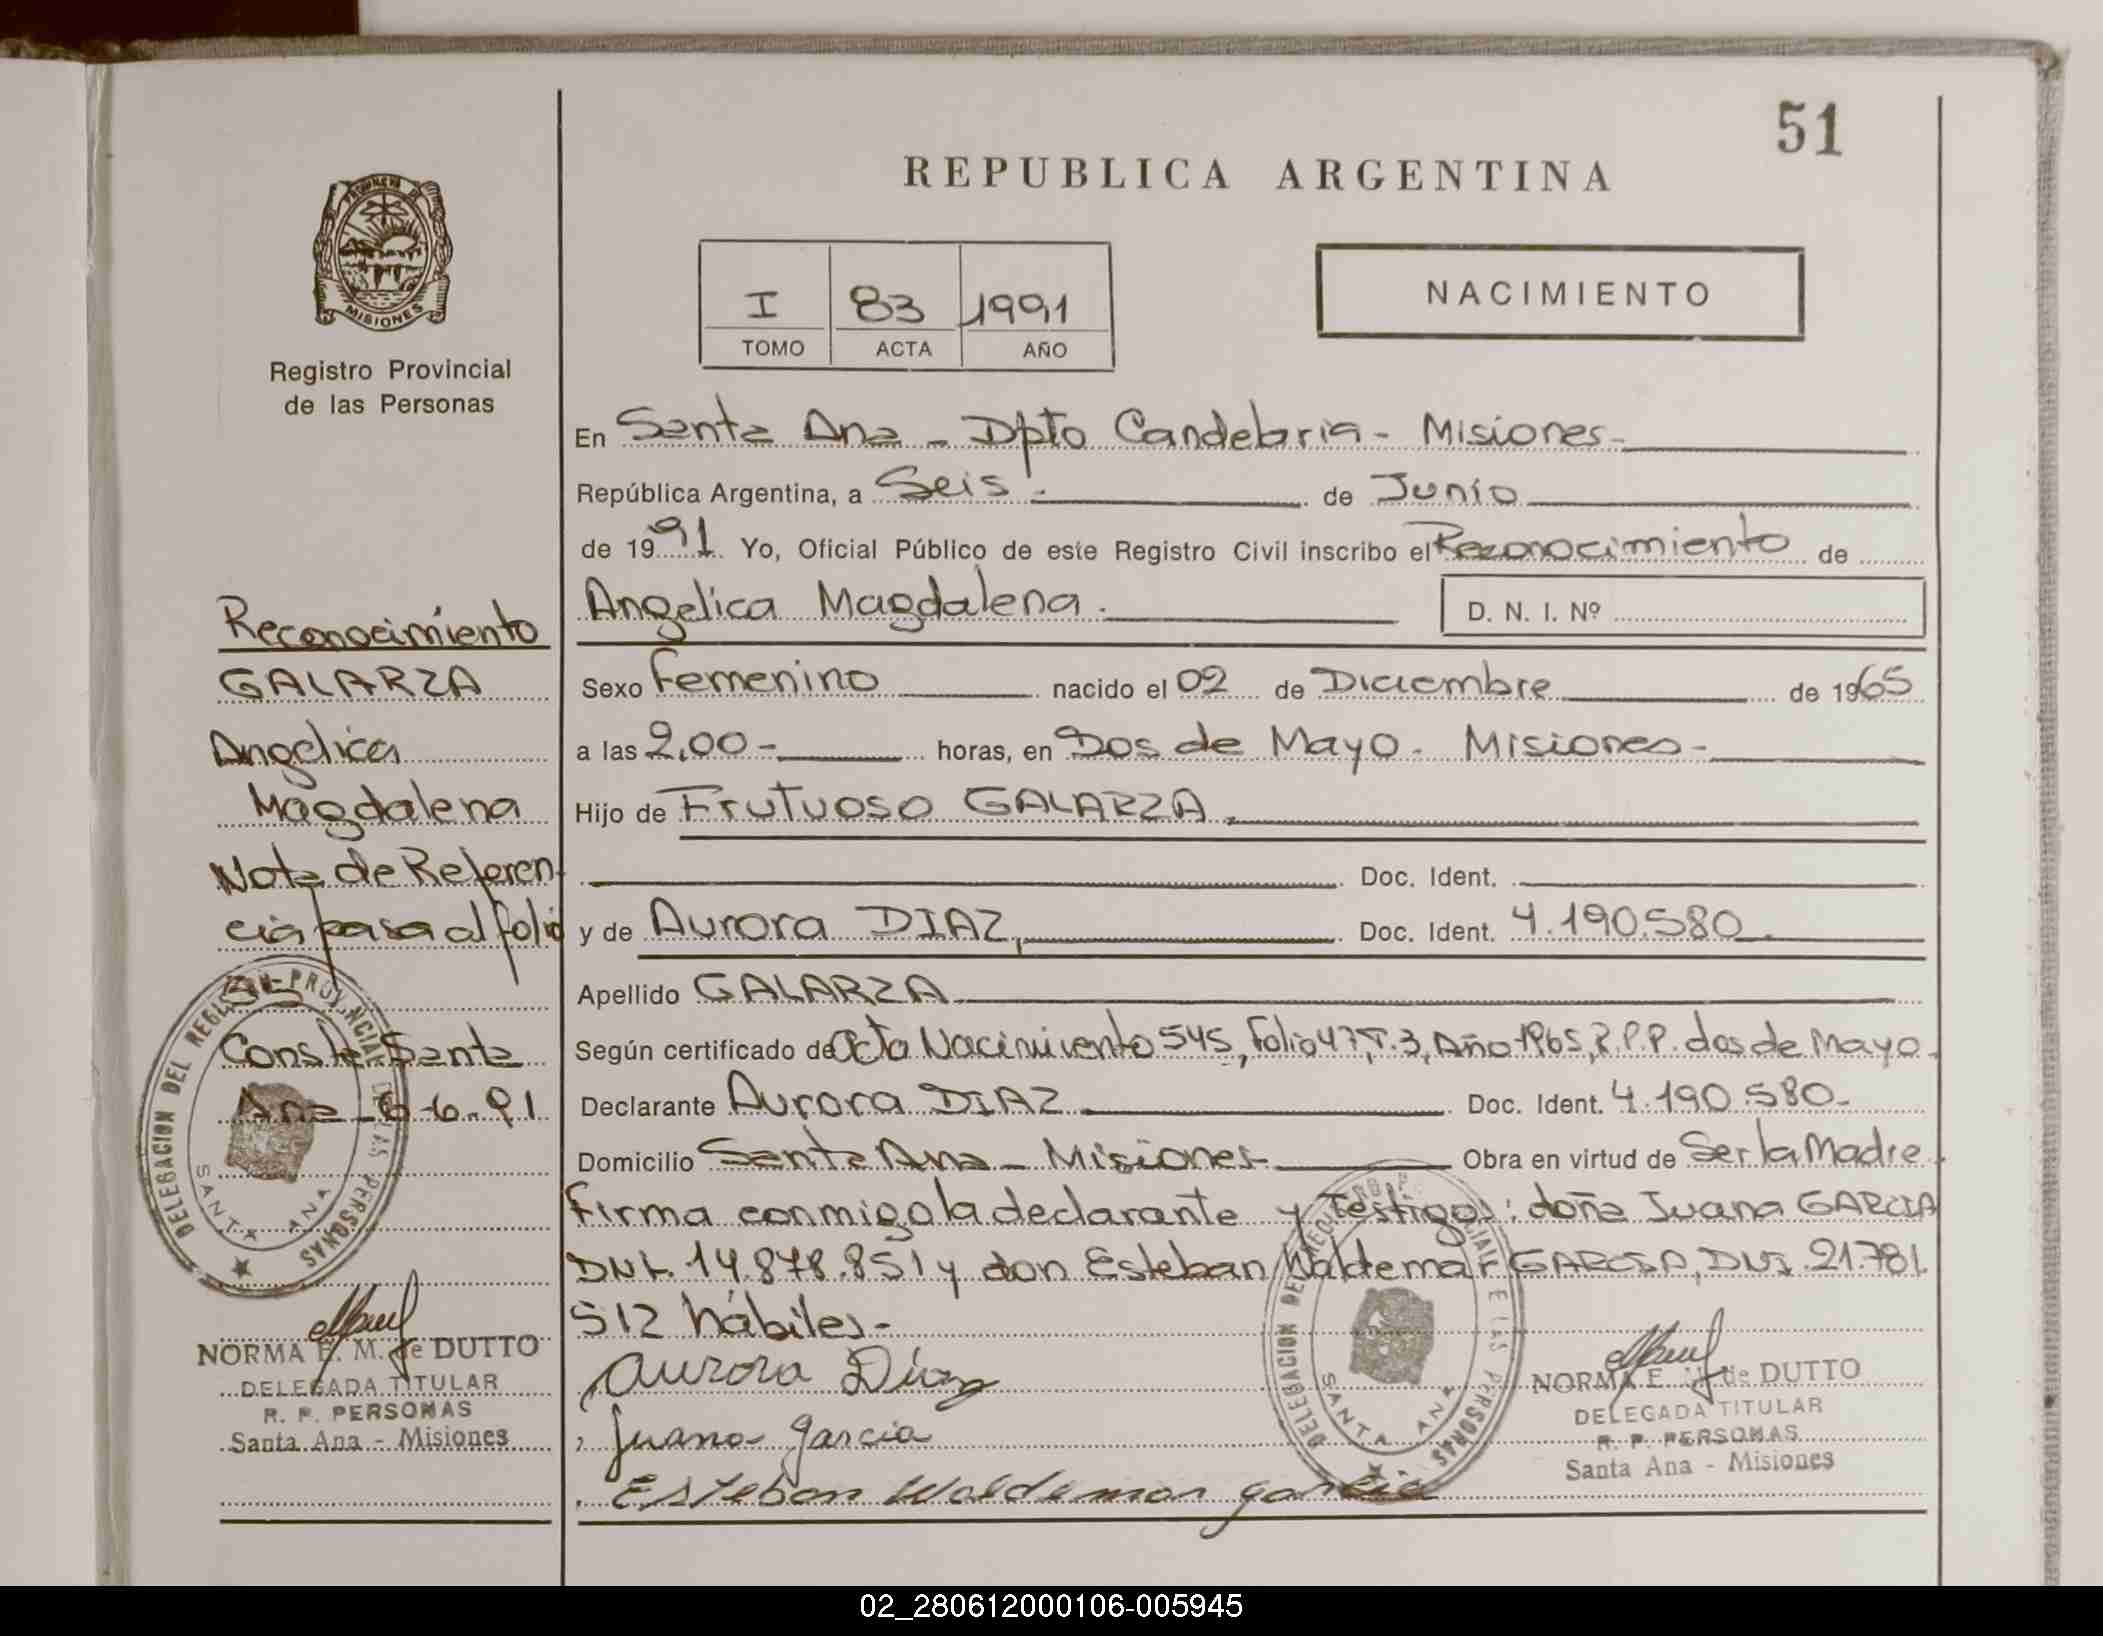 51
REPUBLICA ARGENTINA
PROVINCIA DE
MISIONES
Registro Provincial
de las Personas
I 83 1991
TOMO ACTA AÑO
NACIMIENTO
En Santa Ana - Dpto Candelaria - Misiones-
República Argentina, a Seis - de Junio
de 1991 Yo, Oficial Público de este Registro Civil inscribo el Reconocimiento de
Angelica Magdalena. D. N. I. Nº
Sexo Femenino nacido el 02 de Diciembre de 1965
a las 2,00- horas, en Dos de Mayo - Misiones-
Hijo de Frutuoso GALARZA,
Doc. Ident.
y de Aurora DIAZ, Doc. Ident. 4.190.580
Apellido GALARZA
Según certificado de Acta Nacimiento 545, Folio 47, T.3, Año 1965, R.P.P. dos de Mayo-
Declarante Aurora DIAZ Doc. Ident. 4.190.580-
Domicilio Santa Ana - Misiones- Obra en virtud de Ser la Madre
Firma conmigo la declarante y Testigos: doña Juana GARCIA
DNI. 14.878.851 y don Esteban Waldemar GARCIA, DNI. 21.781.
512 hábiles-
Aurora Díaz
Juana Garcia
Esteban Waldemar Garcia
Reconocimiento
GALARZA
Angelica
Magdalena
Nota de Referen-
cia pasa al folio
Conste Santa
Ana - 6-6-91
DELEGACION DEL REGISTRO PROVINCIAL DE LAS PERSONAS
SANTA ANA
NORMA E. M. de DUTTO
DELEGADA TITULAR
R. P. PERSONAS
Santa Ana - Misiones
DELEGACION DEL REGISTRO PROVINCIAL DE LAS PERSONAS
SANTA ANA
NORMA E. M. de DUTTO
DELEGADA TITULAR
R. P. PERSONAS
Santa Ana - Misiones
02_280612000106-005945